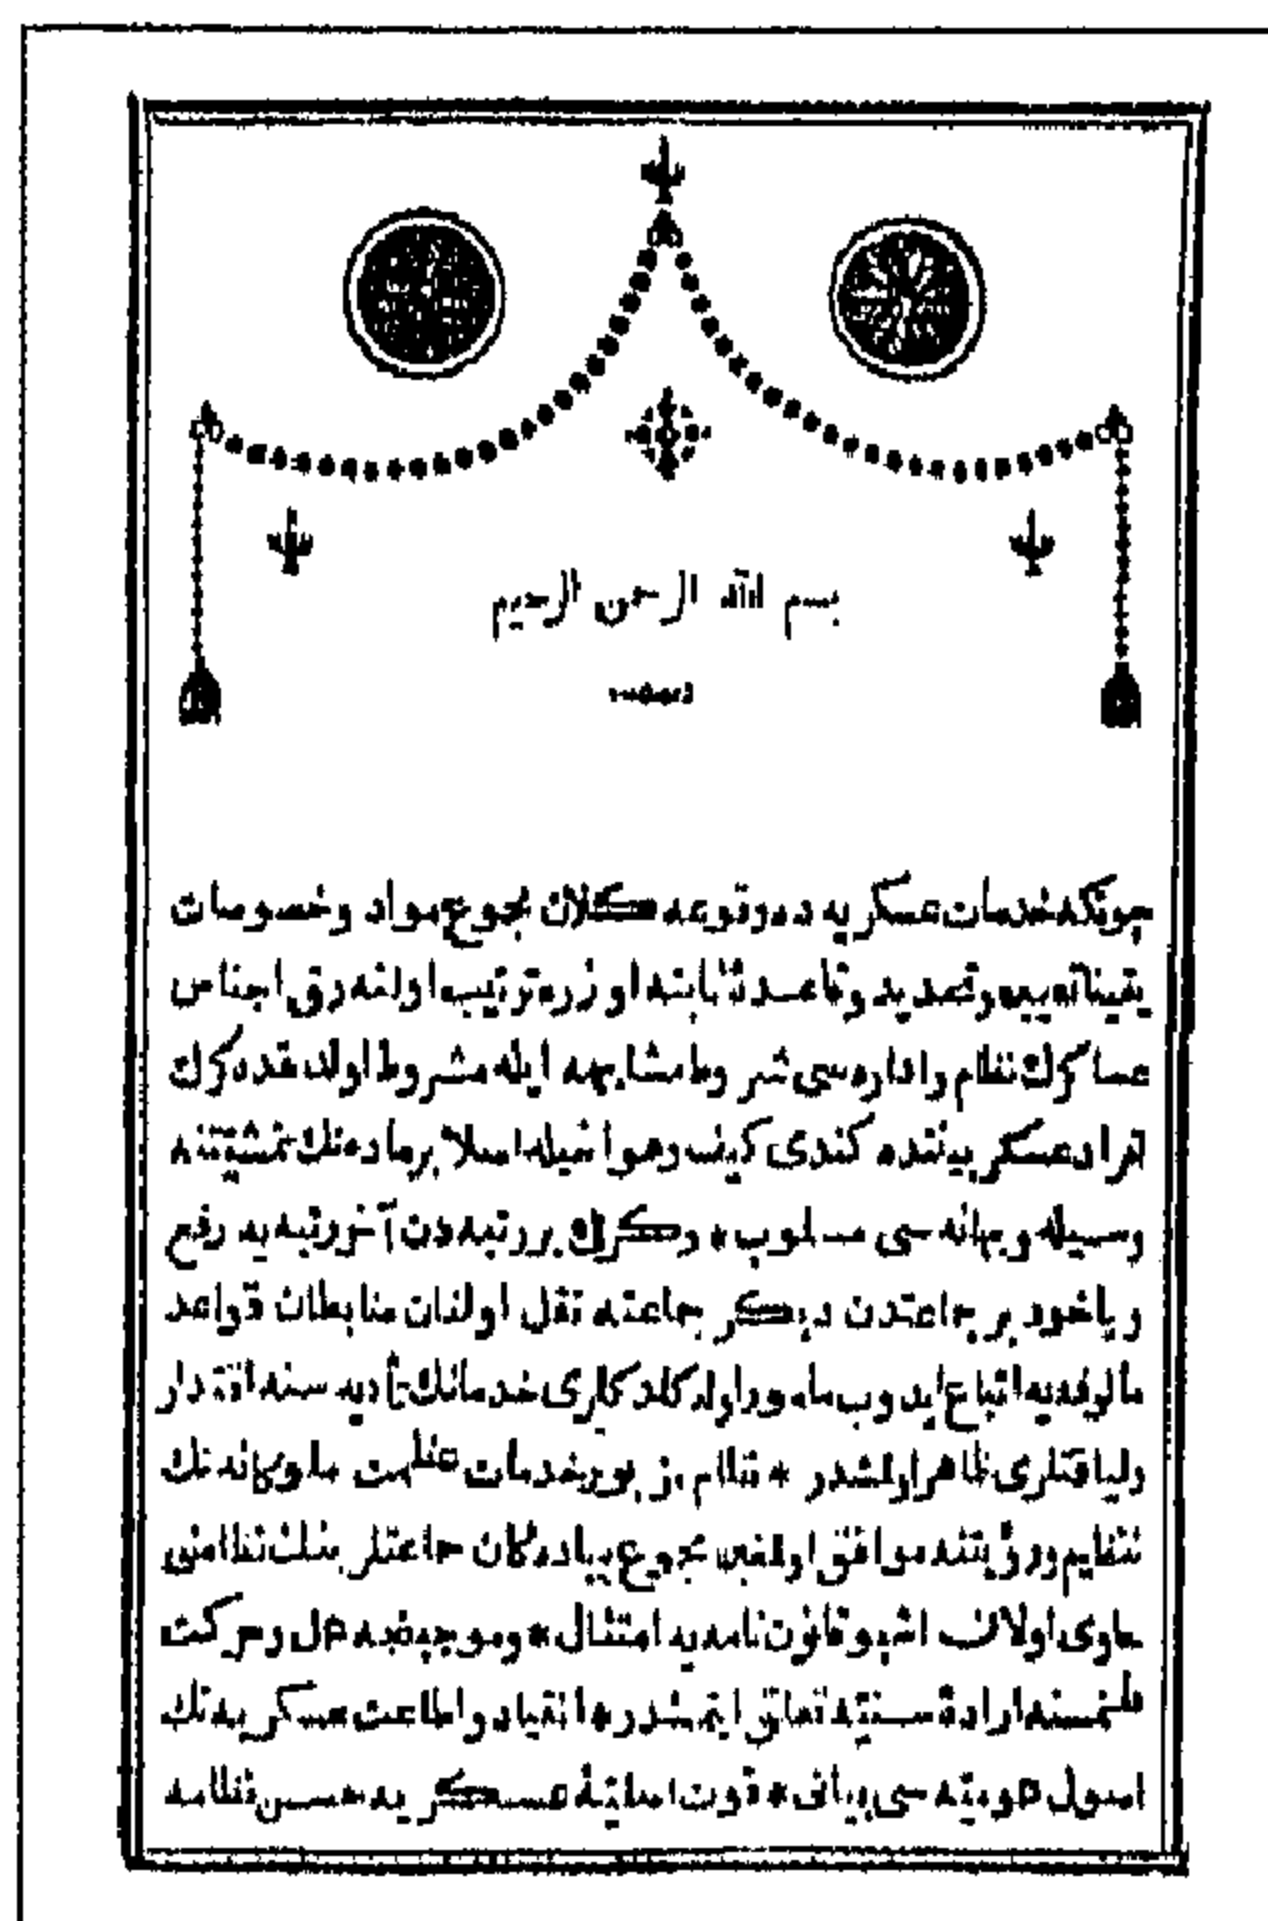 بسم الله الرحمن الرحيم
چونكه خدمات عسكريه ده وقوعه كلان مجموع مواد وخصوصات
تعيين وتحديد وقاعدۀ ثابته اوزره ترتيب اولنه رق اجناس
عساكرك نظام واداره سى شروط مشابهه ايله مشروط اولدقده كرك
افراد عسكر بيننده كندى كيف وهواسيله اصلا برماده نك تمشيتنه
وسيله وبهانه سى مسلوب * وكرك بررتبه دن آخررتبه يه رفع
وياخود برجماعتدن ديكر جماعته نقل اولنان ضابطان قواعد
مألوفه يه اتباع ايدوب مامور اولدكلرى خدماتك تأديه سنه اقتدار
ولياقتلرى ظاهراولمشدر * نظام خدمات ملوكانه نك
تنظيم ورؤيتنه موافق اولمغين مجموع پيادكان جماعتلرينك نظامنى
حاوى اولان اشبو قانون نامه يه امتثال * وموجبنجه عمل وحركت
قلنمسنه ارادۀ سنيه تعلق ايتمشدر * انقياد واطاعت عسكريه نك
اصول عموميه سى بيانى * قوت اصليۀ عسكريه حسن نظامه